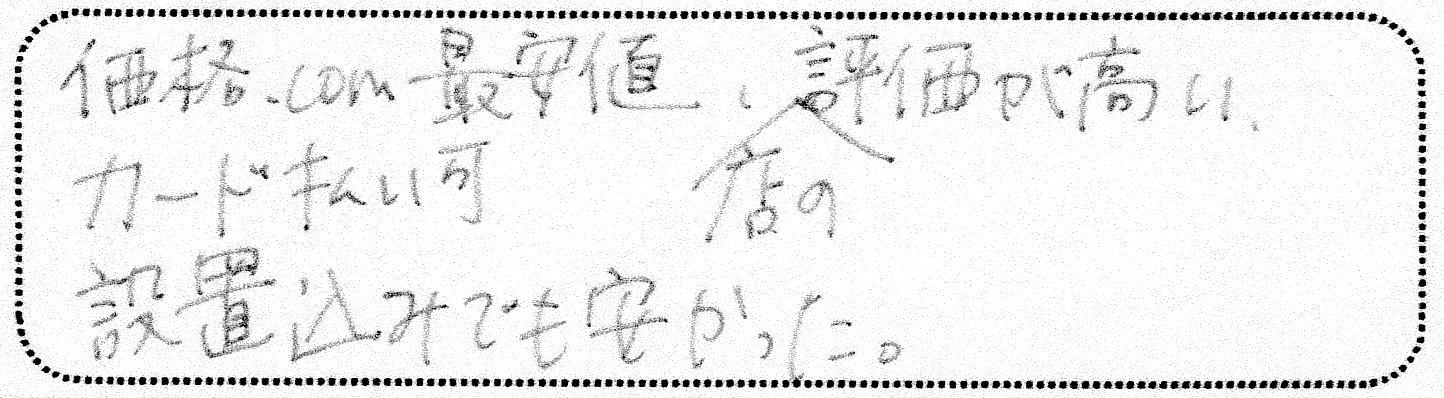 価格.com最安値、店の評価が高い、
カード払い可
設置込みでも安かった。